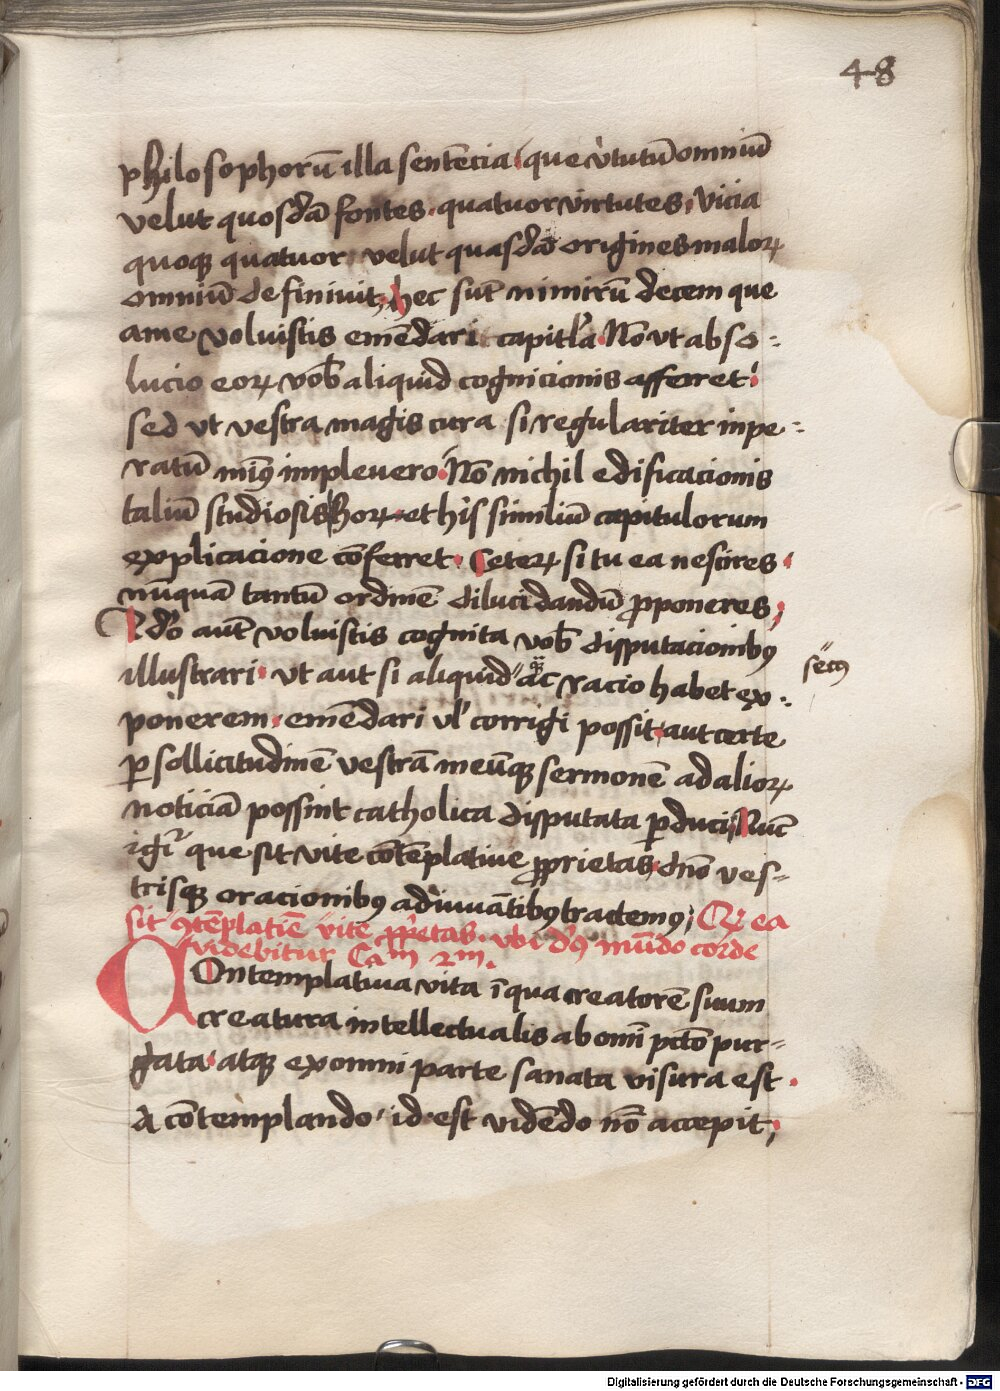 48
philosophorū illa sentēcia que v̓tutū omniū
velut quosdā fontes quatuor virtutes, vicia
quoqꝫ quatuor velut quasdā origines maloꝝ
omniū definiuit, hec sūt nimirū decem que
a me voluistis emēdari capitl̓a. Nō vt abso⸗
lucio eoꝝ vob̄ aliquid cognicionis afferret:
sed vt vestra magis cura si regulariter inpe⸗
ratū miꝰ impleuero. Nō nichil edificacionis
taliū studiosis hoꝝ et his similiū capitulorum
explicacione cōferret. Ceteꝝ si tu ea nescires
nūquā tantū ordinē dilucidandū ꝓponeres,
Id̓o aūt voluistis cognita vob̄ disputacionibꝰ
illustrari. vt aut si aliquid ac̄ racio habet ex⸗
secꝰ
ponerem. emēdari vl̓ corrigi possit. aut certe
ꝑ sollicitudinē vestrā meūqꝫ sermonē ad alioꝝ
noticiā possint catholica disputata ꝑduci, Nūc
igi᷑ que sit vite cōtēplatiue ꝓprietas, dn̄o ves⸗
trisqꝫ oracionibꝰ adiuuātibꝰ tractemꝰ; Qꝫ ea
sit ꝯtēplatiē vite ꝓp̓etas. vbi d̓s mūdo corde
videbitur Caᵐ 2ᵐ.
Contemplatiua vita ī qua creatorē suum
creatura intellectualis ab om̄i pctō pur⸗
gata atqꝫ ex omni parte sanata visura est.
A cōtemplando id est vidēdo nōm accepit,
Digitalisierung gefördert durch die Deutsche Forschungsgemeinschaft - DFG